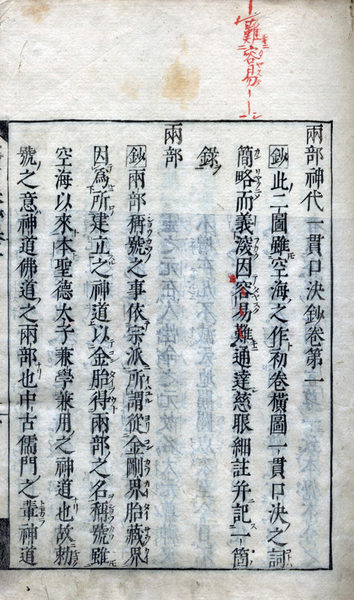 難容易
兩部神代一貫口決鈔卷第一
鈔此二圖雖空海之作初卷橫圖一貫口決之詞
簡略而義深因容易難通達慈眼細註并記一箇
錄
兩部
鈔兩部稱號之事依宗派所謂從金剛界胎藏界
因爲所建立之神道以金胎得兩部之名稱號雖
空海以來本聖德太子兼學兼用之神道也故勅
號之意神道佛道之兩部也中古儒門之輩神道